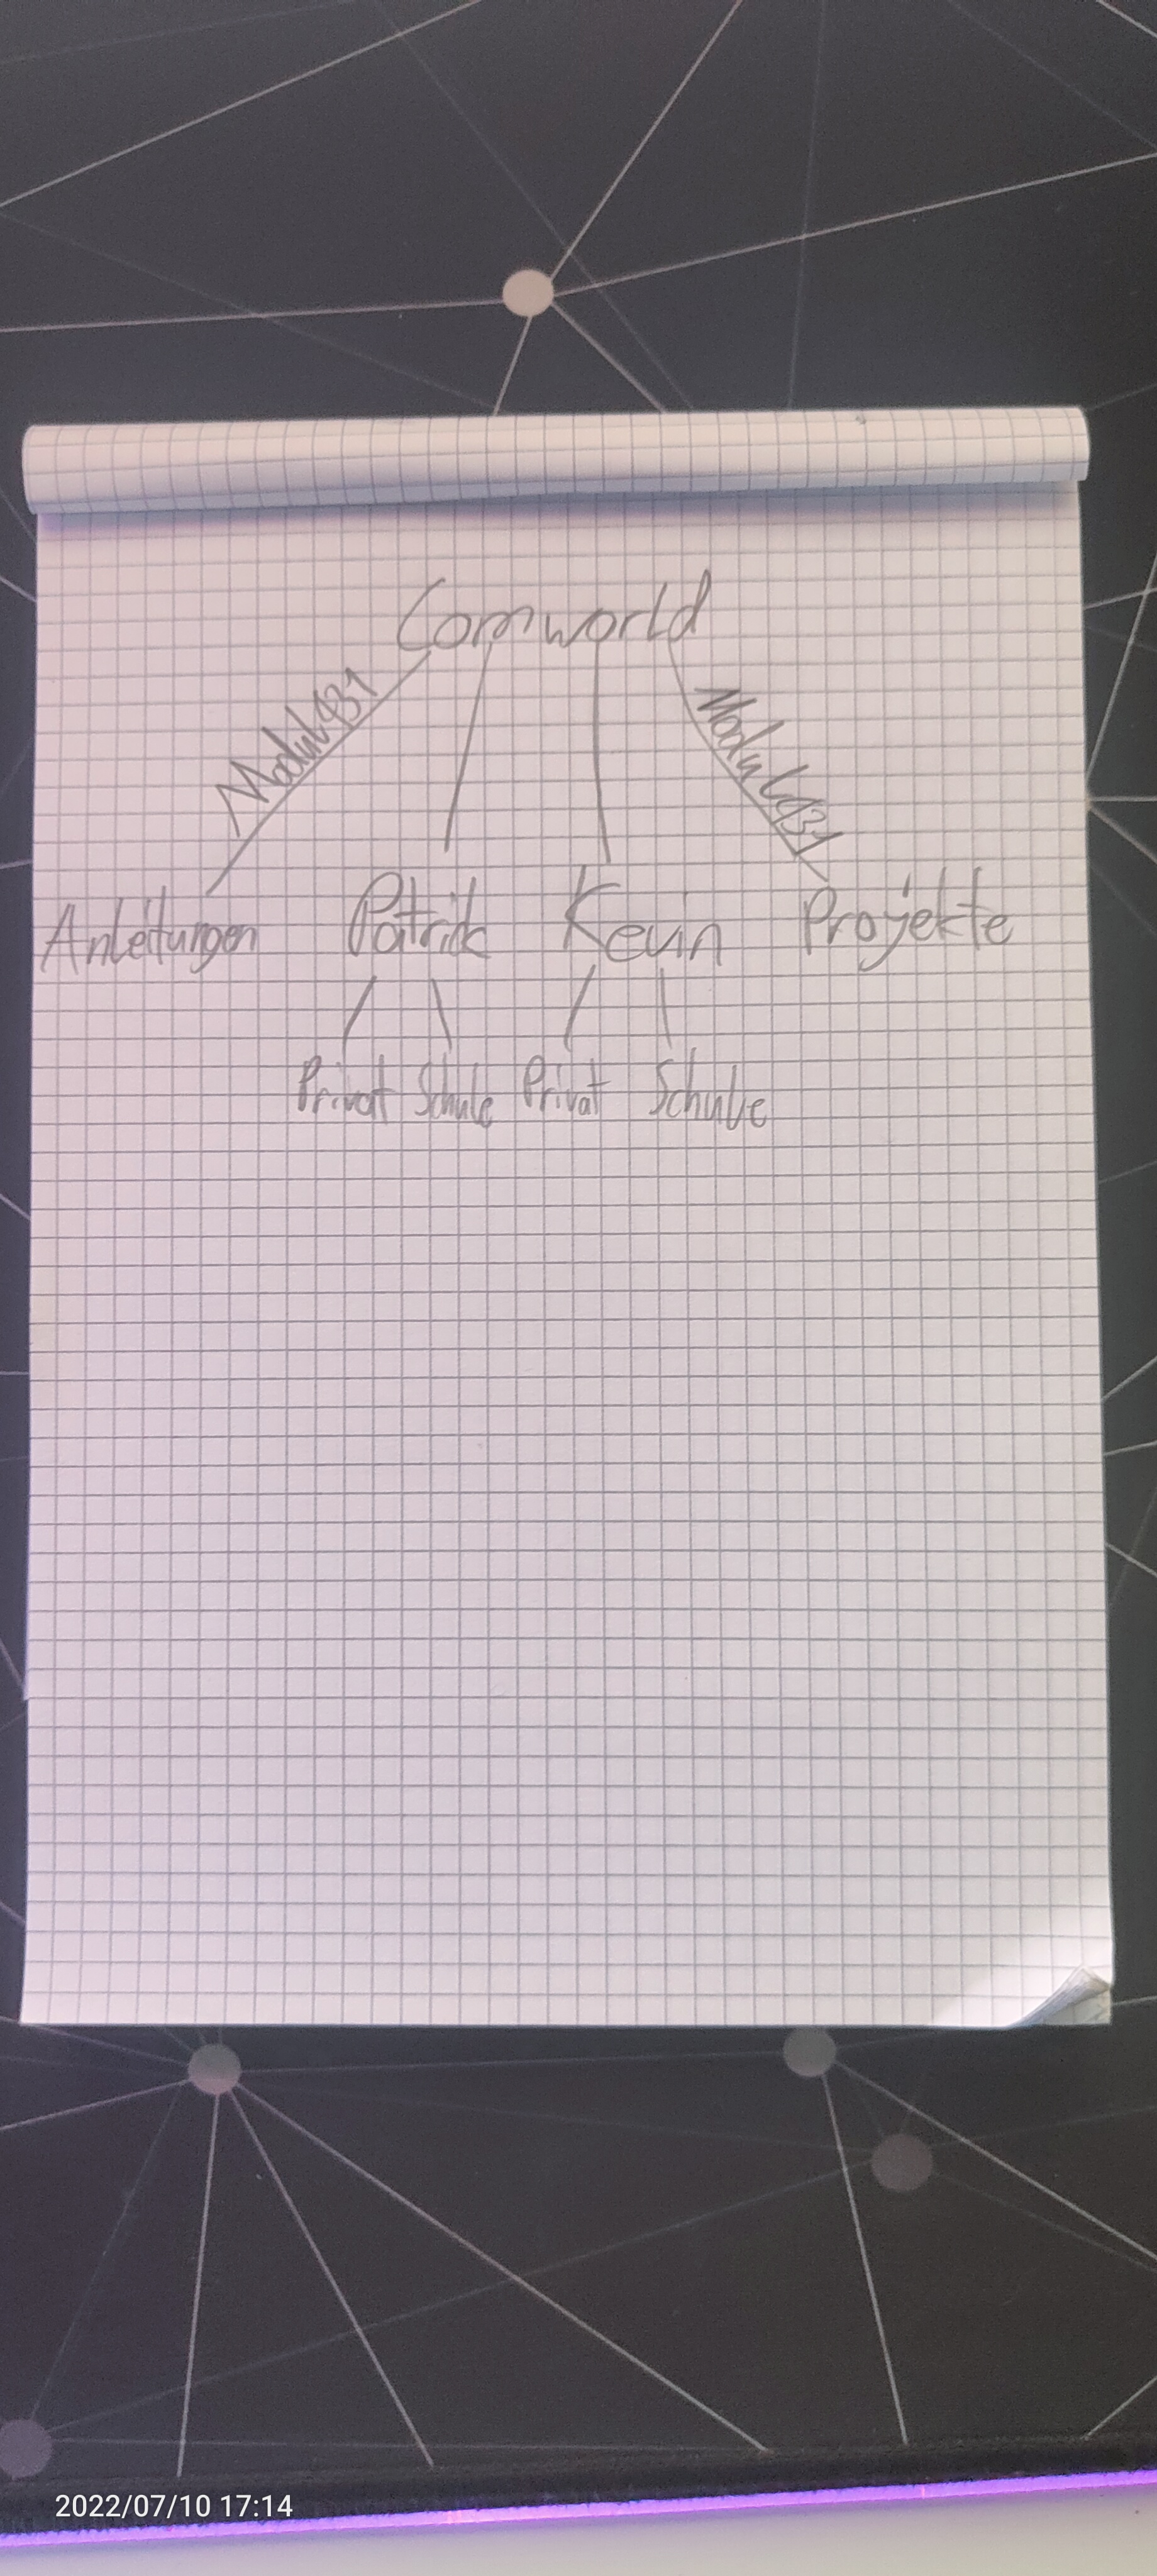 Comworld
Modul 431
Modul 431
Anleitungen Patrik Kevin Projekte
Privat Schule Privat Schule
2022/07/10 17:14